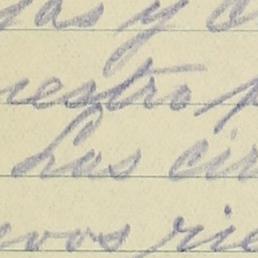 as y
estro
Las cir
vos rie